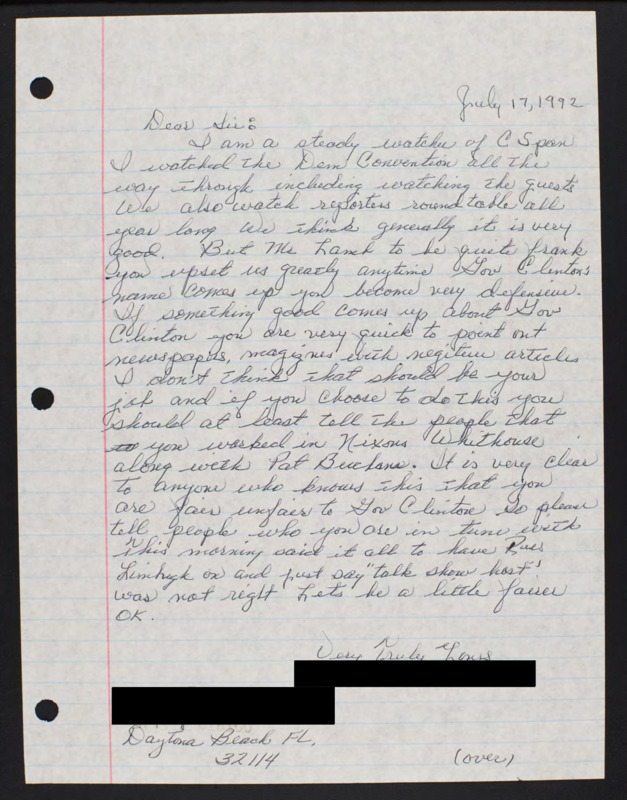 July 17, 1992
Dear Sir:
I am a steady watcher of C Span
I watched the Dem Convention all the
way through including watching the guests
We also watch reporters roundtable all
year long We think generally it is very
good. But Mr Lamb to be quite frank
you upset us greatly anytime Gov Clinton's
name comes up you become very defensive.
If something good comes up about Gov
Clinton you are very quick to point out
newspapers, magizines with negitive articles
I don't think that should be your
job and if you choose to do this you
should at least tell the people that
you worked in Nixons Whithouse
along with Pat Buchann. It is very clear
to anyone who knows this that you
are fair unfair to Gov Clinton so please
tell people who you are in tune with
This morning said it all to have Rus
Limbugh on and just say "talk show host"
was not right Lets be a little fairer
OK.
Very Truly Yours
Daytona Beach FL.
32114
(over)